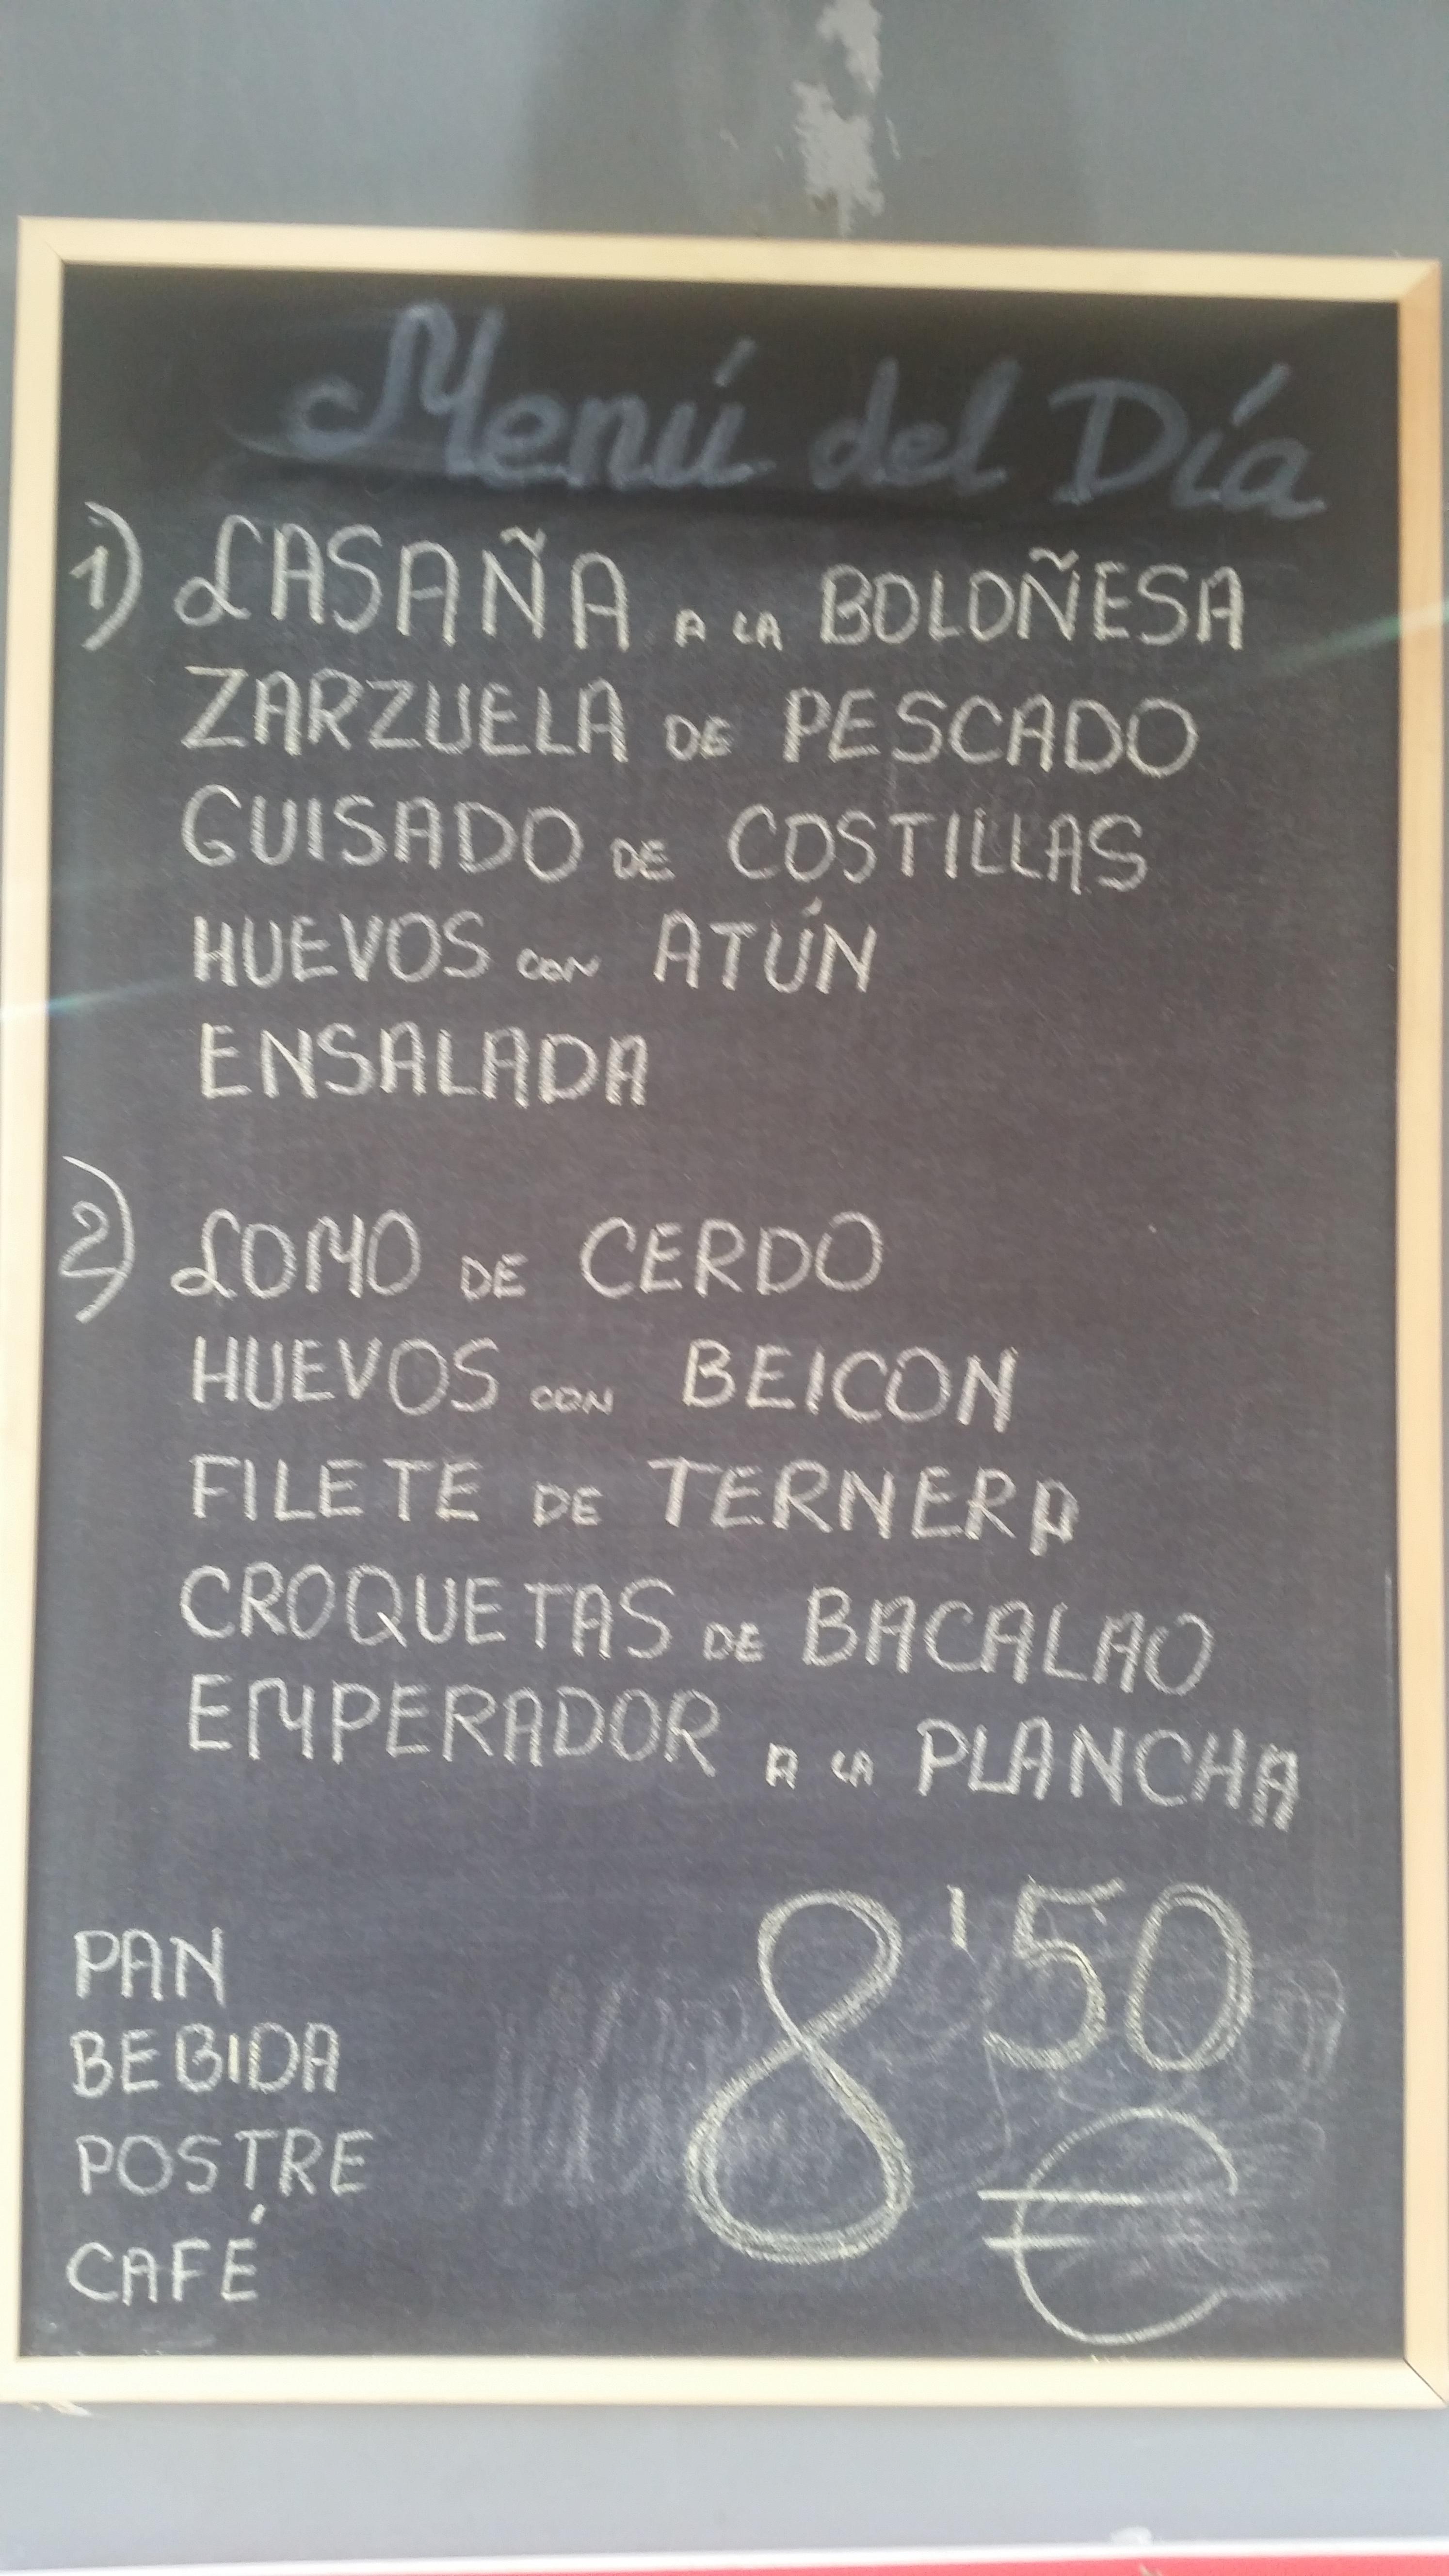 Menú del Día
1) LASAÑA A LA BOLOÑESA
ZARZUELA DE PESCADO
GUISADO DE COSTILLAS
HUEVOS CON ATÚN
ENSALADA
2) LOMO DE CERDO
HUEVOS CON BEICON
FILETE DE TERNERA
CROQUETAS DE BACALAO
EMPERADOR A LA PLANCHA
PAN
BEBIDA
POSTRE
CAFÉ
8'50
€